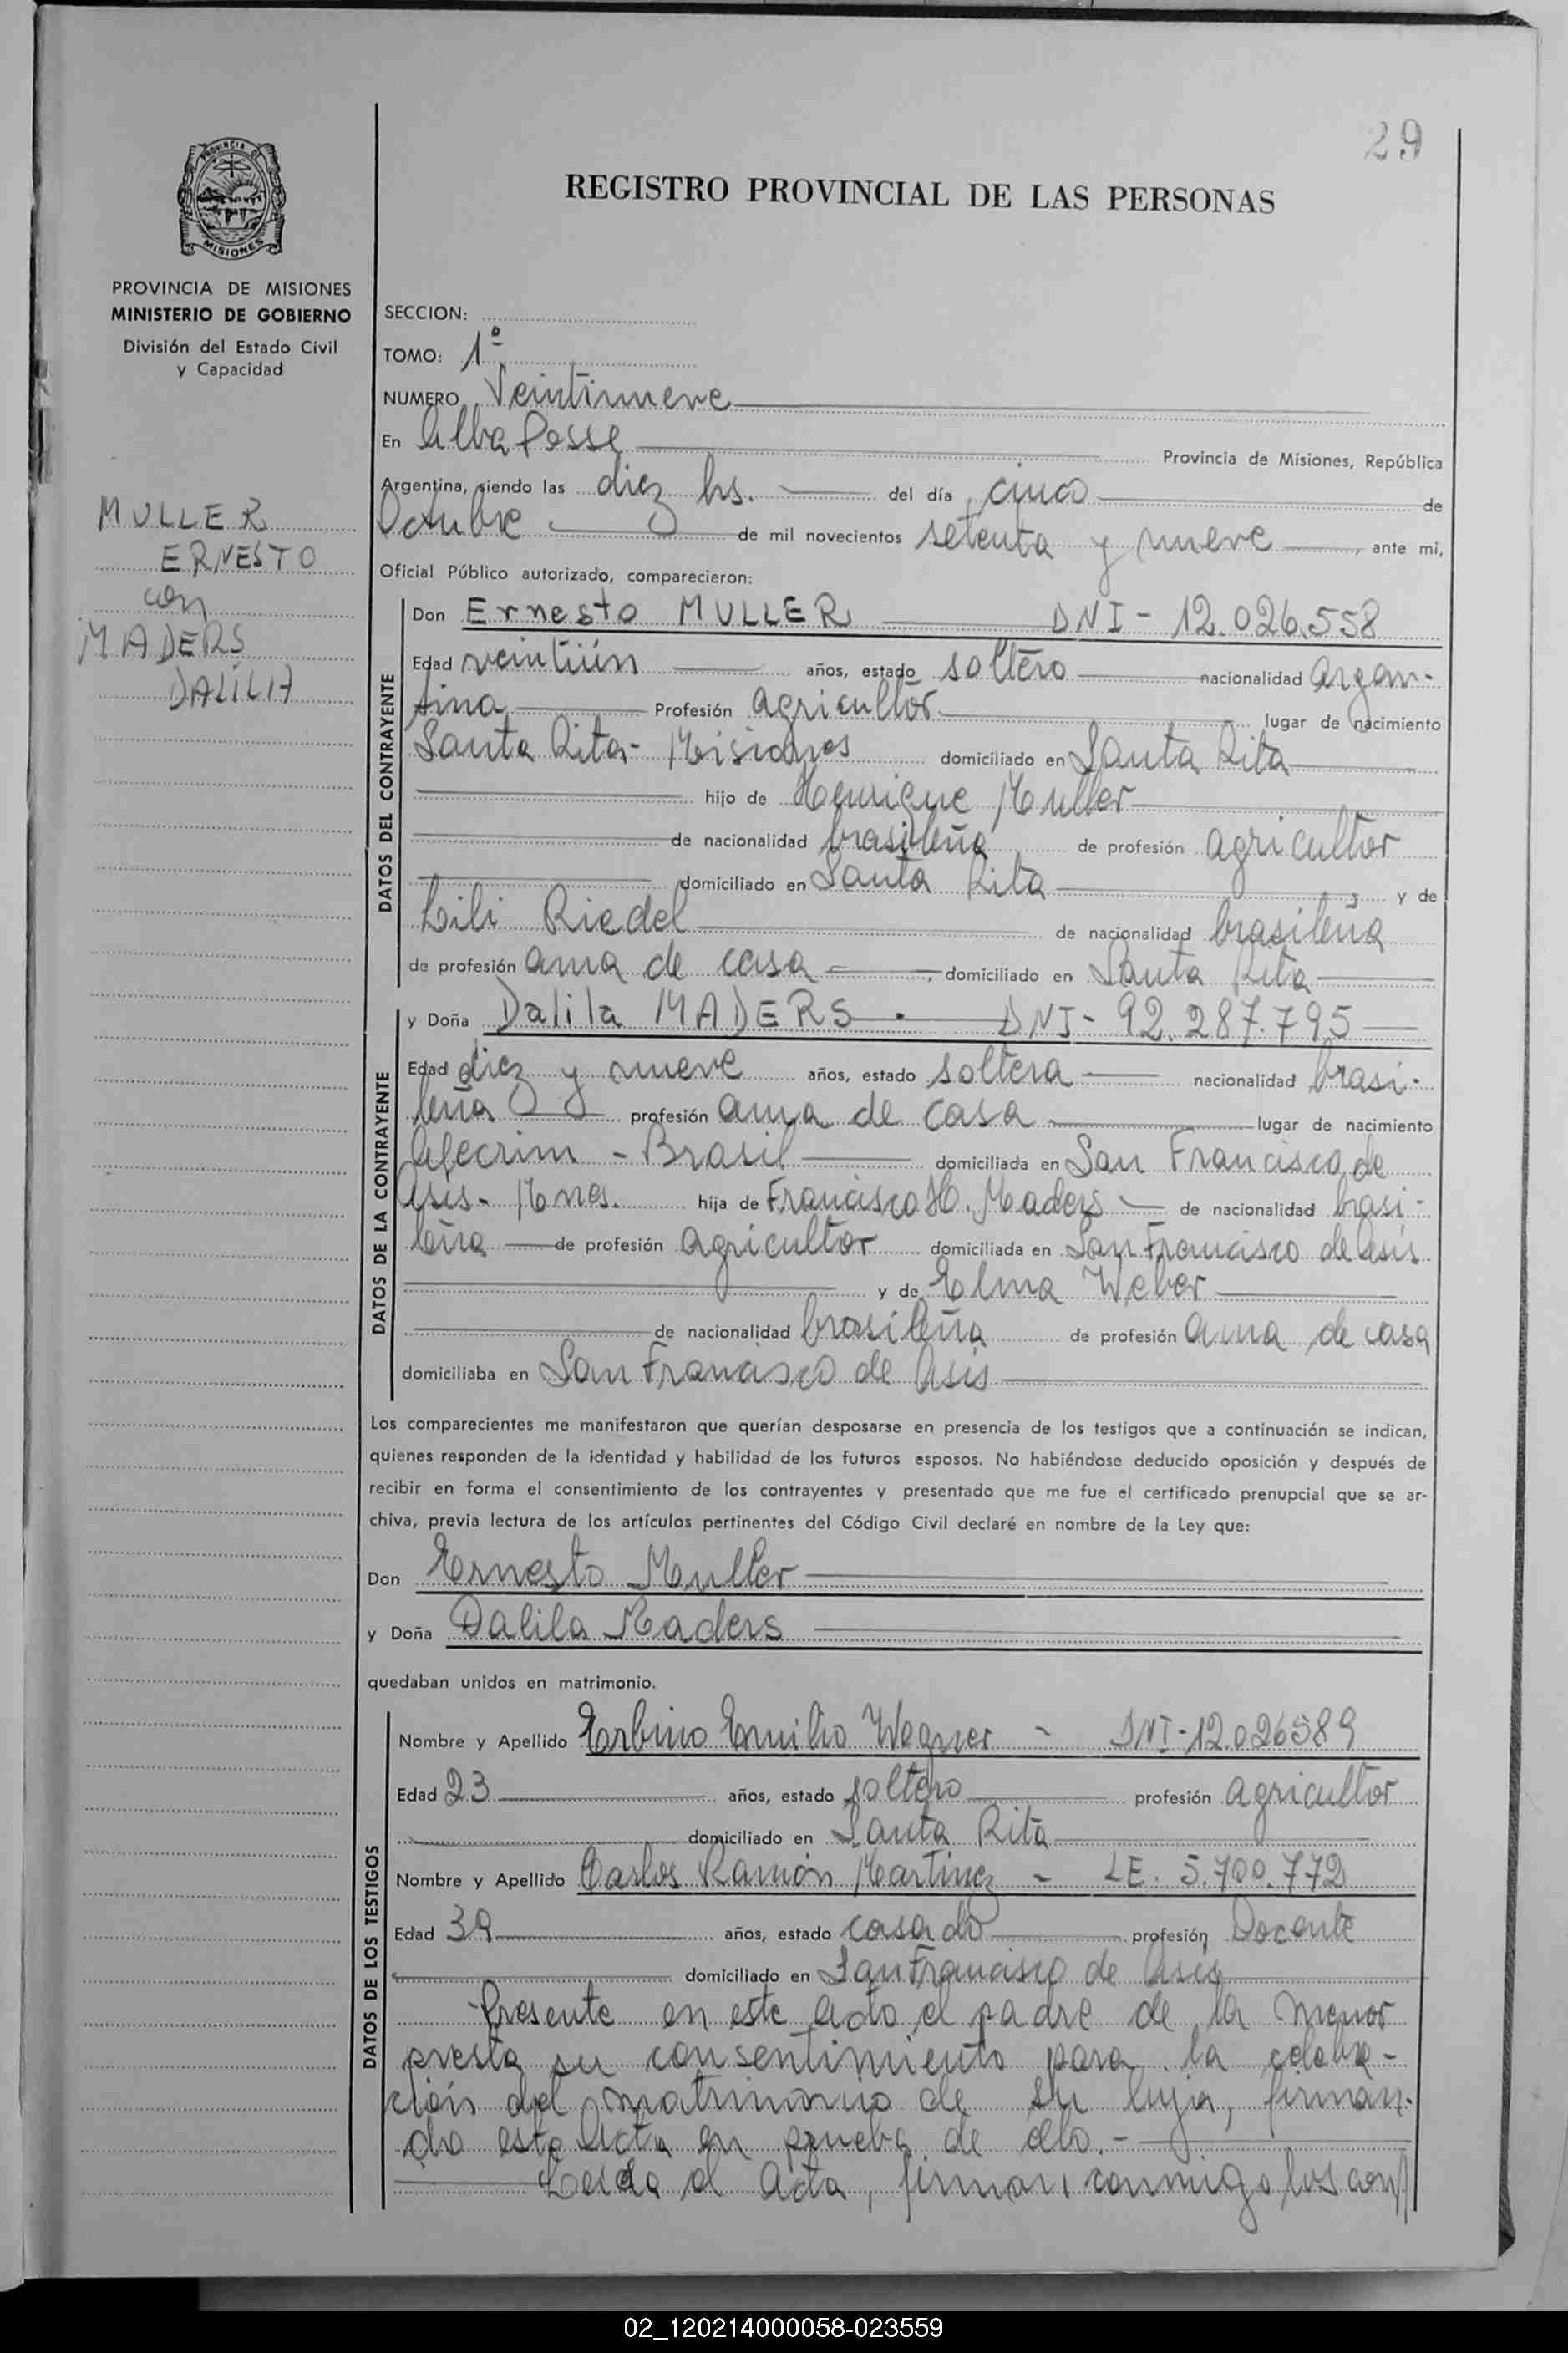 29
PROVINCIA DE
MISIONES
REGISTRO PROVINCIAL DE LAS PERSONAS
PROVINCIA DE MISIONES
MINISTERIO DE GOBIERNO
División del Estado Civil
y Capacidad
MULLER
ERNESTO
con
MADERS
DALILA
SECCION:
TOMO: 1º
NUMERO Veintinueve
En Alba Posse Provincia de Misiones, República
Argentina, siendo las diez hs. del día cinco de
Octubre de mil novecientos setenta y nueve, ante mi,
Oficial Público autorizado, comparecieron:
DATOS DEL CONTRAYENTE
Don Ernesto MULLER DNI - 12.026.558
Edad veintiún años, estado soltero nacionalidad argen-
tina Profesión agricultor lugar de nacimiento
Santa Rita - Misiones domiciliado en Santa Rita
hijo de Henrique Muller
de nacionalidad brasileña de profesión agricultor
domiciliado en Santa Rita, y de
Lili Riedel de nacionalidad brasileña
de profesión ama de casa, domiciliado en Santa Rita
DATOS DE LA CONTRAYENTE
y Doña Dalila MADERS. DNI - 92.287.795
Edad diez y nueve años, estado soltera nacionalidad brasi-
leña profesión ama de casa lugar de nacimiento
Alecrim - Brasil domiciliada en San Francisco de
Asis - Mnes. hija de Francisco H. Maders de nacionalidad brasi-
leña de profesión agricultor domiciliada en San Francisco de Asís
y de Elma Weber
de nacionalidad brasileña de profesión ama de casa
domiciliaba en San Francisco de Asis
Los comparecientes me manifestaron que querían desposarse en presencia de los testigos que a continuación se indican,
quienes responden de la identidad y habilidad de los futuros esposos. No habiéndose deducido oposición y después de
recibir en forma el consentimiento de los contrayentes y presentado que me fue el certificado prenupcial que se ar-
chiva, previa lectura de los artículos pertinentes del Código Civil declaré en nombre de la Ley que:
Don Ernesto Muller
y Doña Dalila Maders
quedaban unidos en matrimonio.
DATOS DE LOS TESTIGOS
Nombre y Apellido Erbino Emilio Wagner - DNI-12.026589
Edad 23 años, estado soltero profesión agricultor
domiciliado en Santa Rita
Nombre y Apellido Carlos Ramón Martinez - LE. 5.700.772
Edad 39 años, estado casado profesión Docente
domiciliado en San Francisco de Asis
Presente en este acto el padre de la menor
presta su consentimiento para la celebra-
ción del matrimonio de su hija, firman-
do esta Acta en prueba de ello.-
Leida el Acta, firman conmigo los cont
02_120214000058-023559